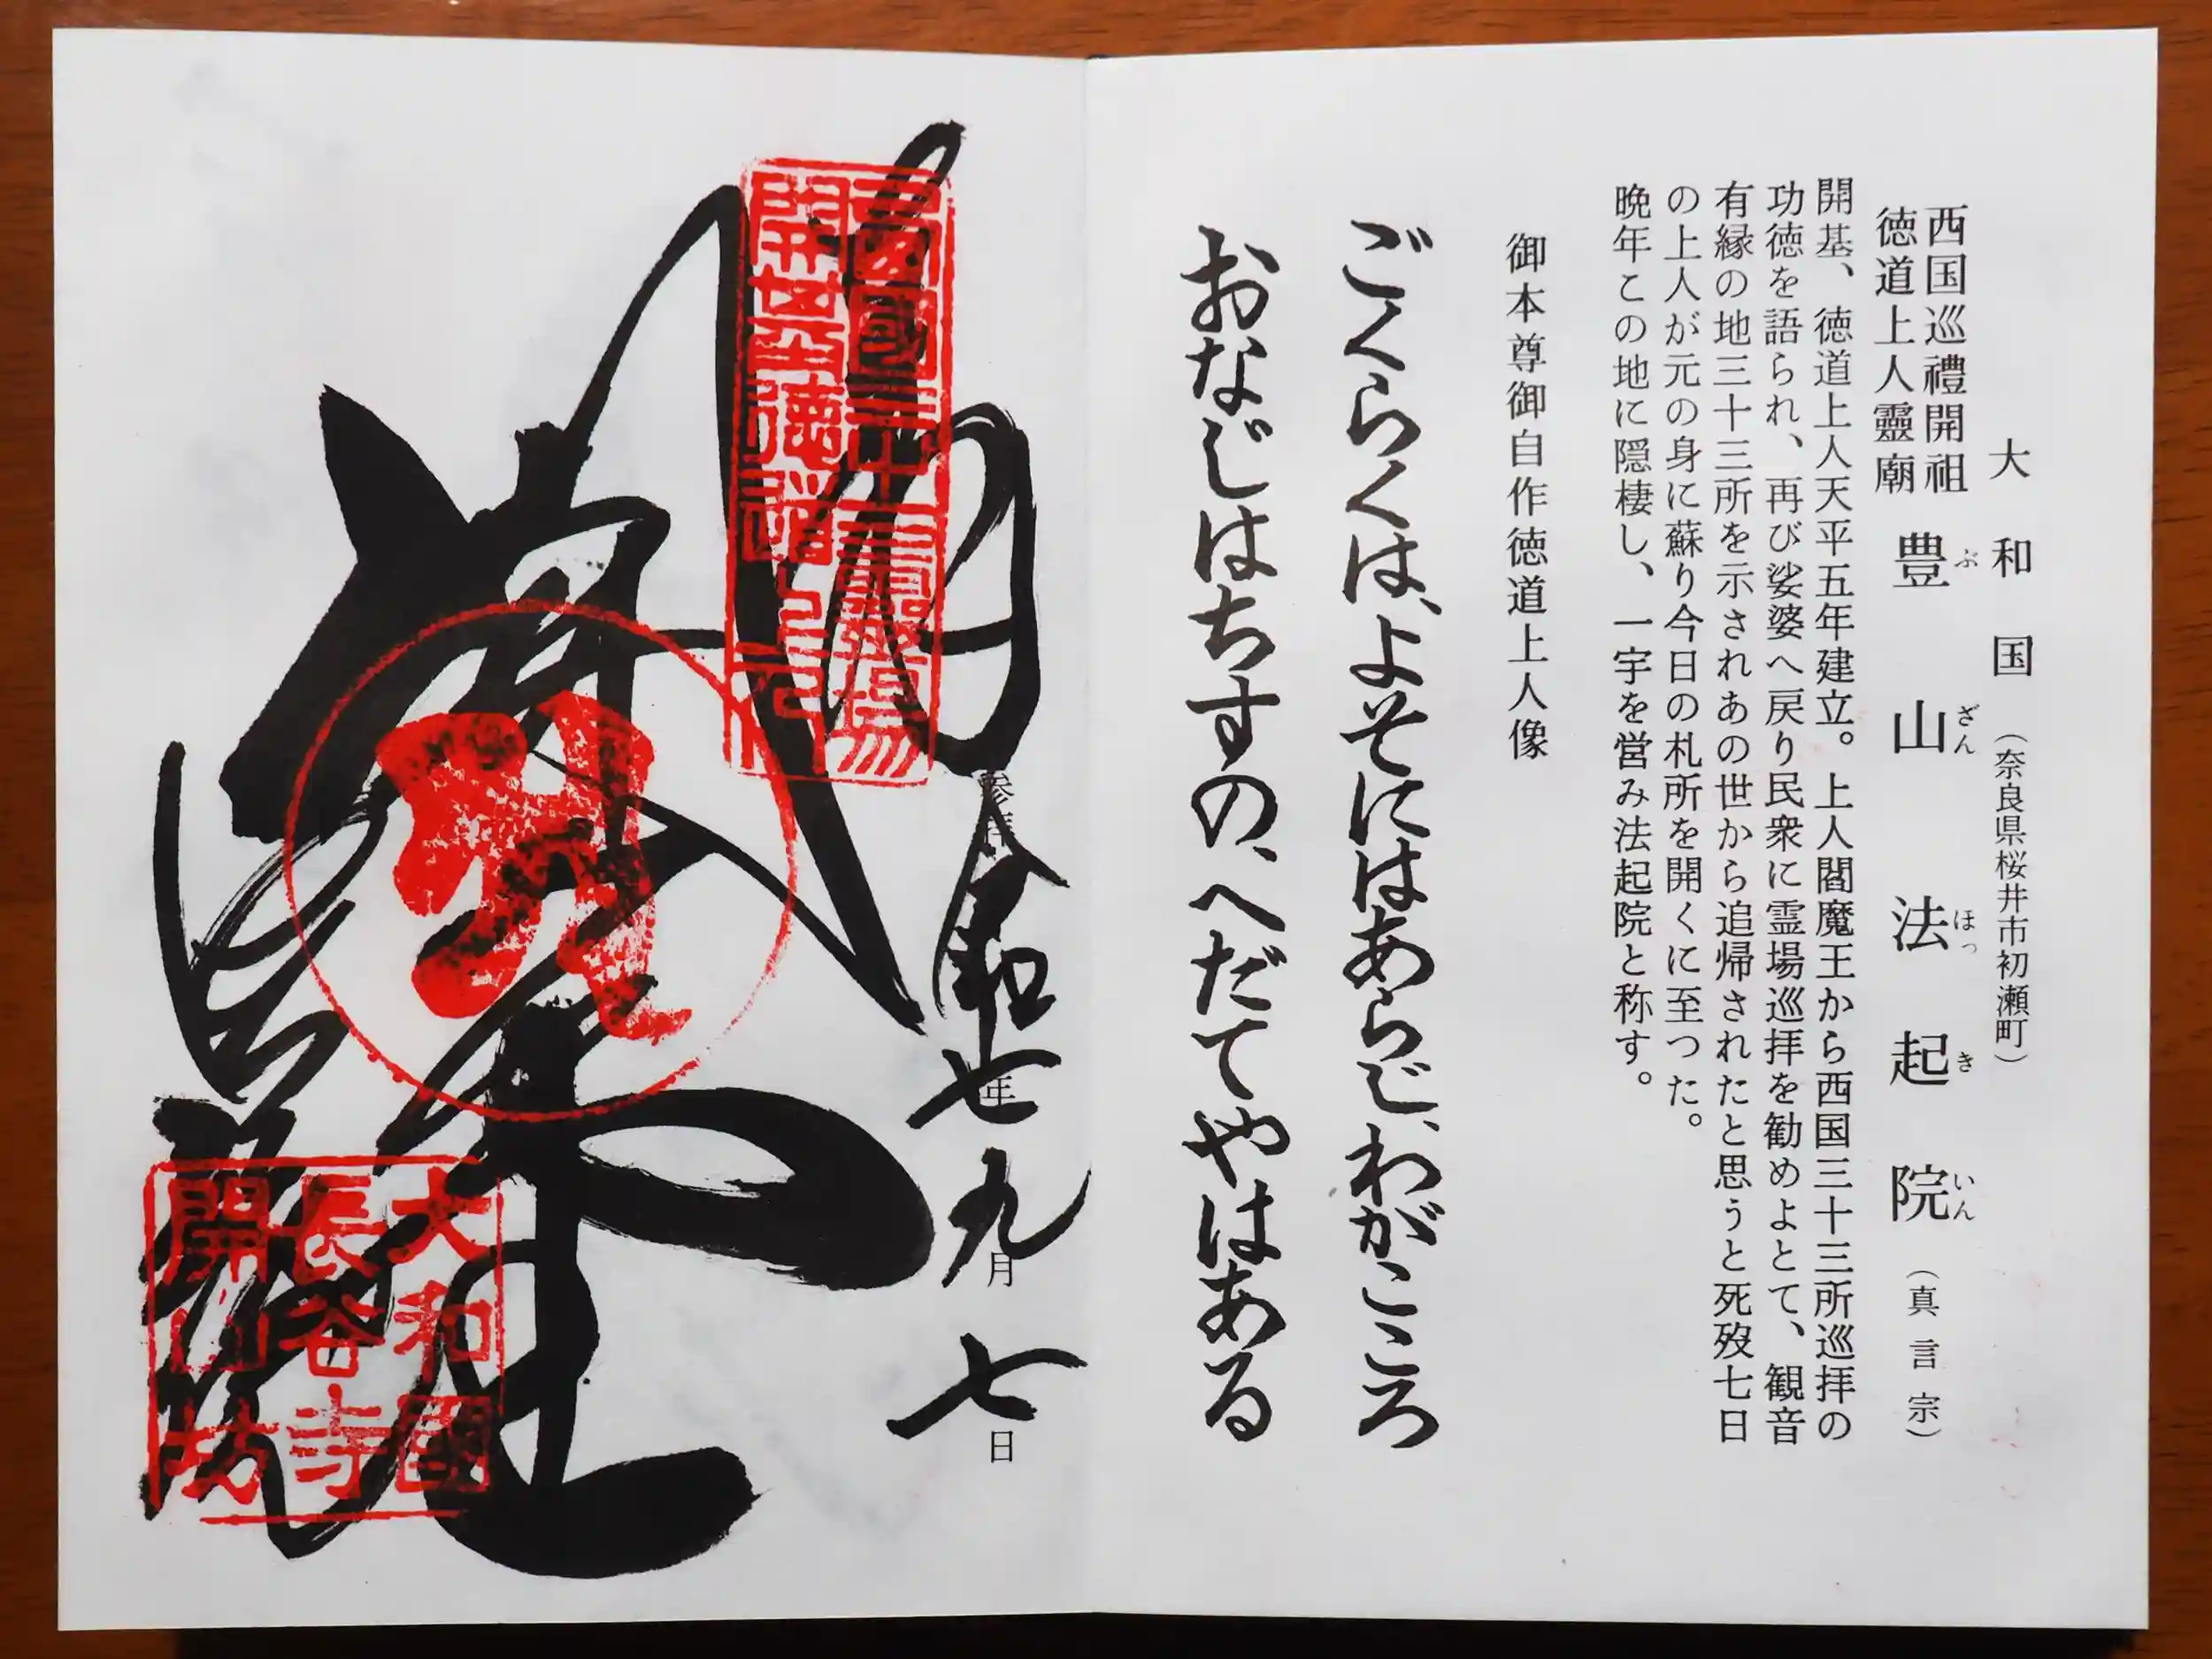 大和国（奈良県桜井市初瀬町）
西国巡禮開祖
徳道上人靈廟
豊山法起院（真言宗）
ぶざんほっきいん
開基、徳道上人天平五年建立。上人閻魔王から西国三十三所巡拝の
功徳を語られ、再び娑婆へ戻り民衆に霊場巡拝を勧めよとて、観音
有縁の地三十三所を示されあの世から追帰されたと思うと死歿七日
の上人が元の身に蘇り今日の札所を開くに至った。
晩年この地に隠棲し、一宇を営み法起院と称す。
御本尊御自作徳道上人像
ごくらくは、よそにはあらじ、わがこころ
おなじはちすの、へだてやはある
参拝
令和七年九月七日
西國三十三霊場
開基徳道上人
大和國
長谷寺
開山坊